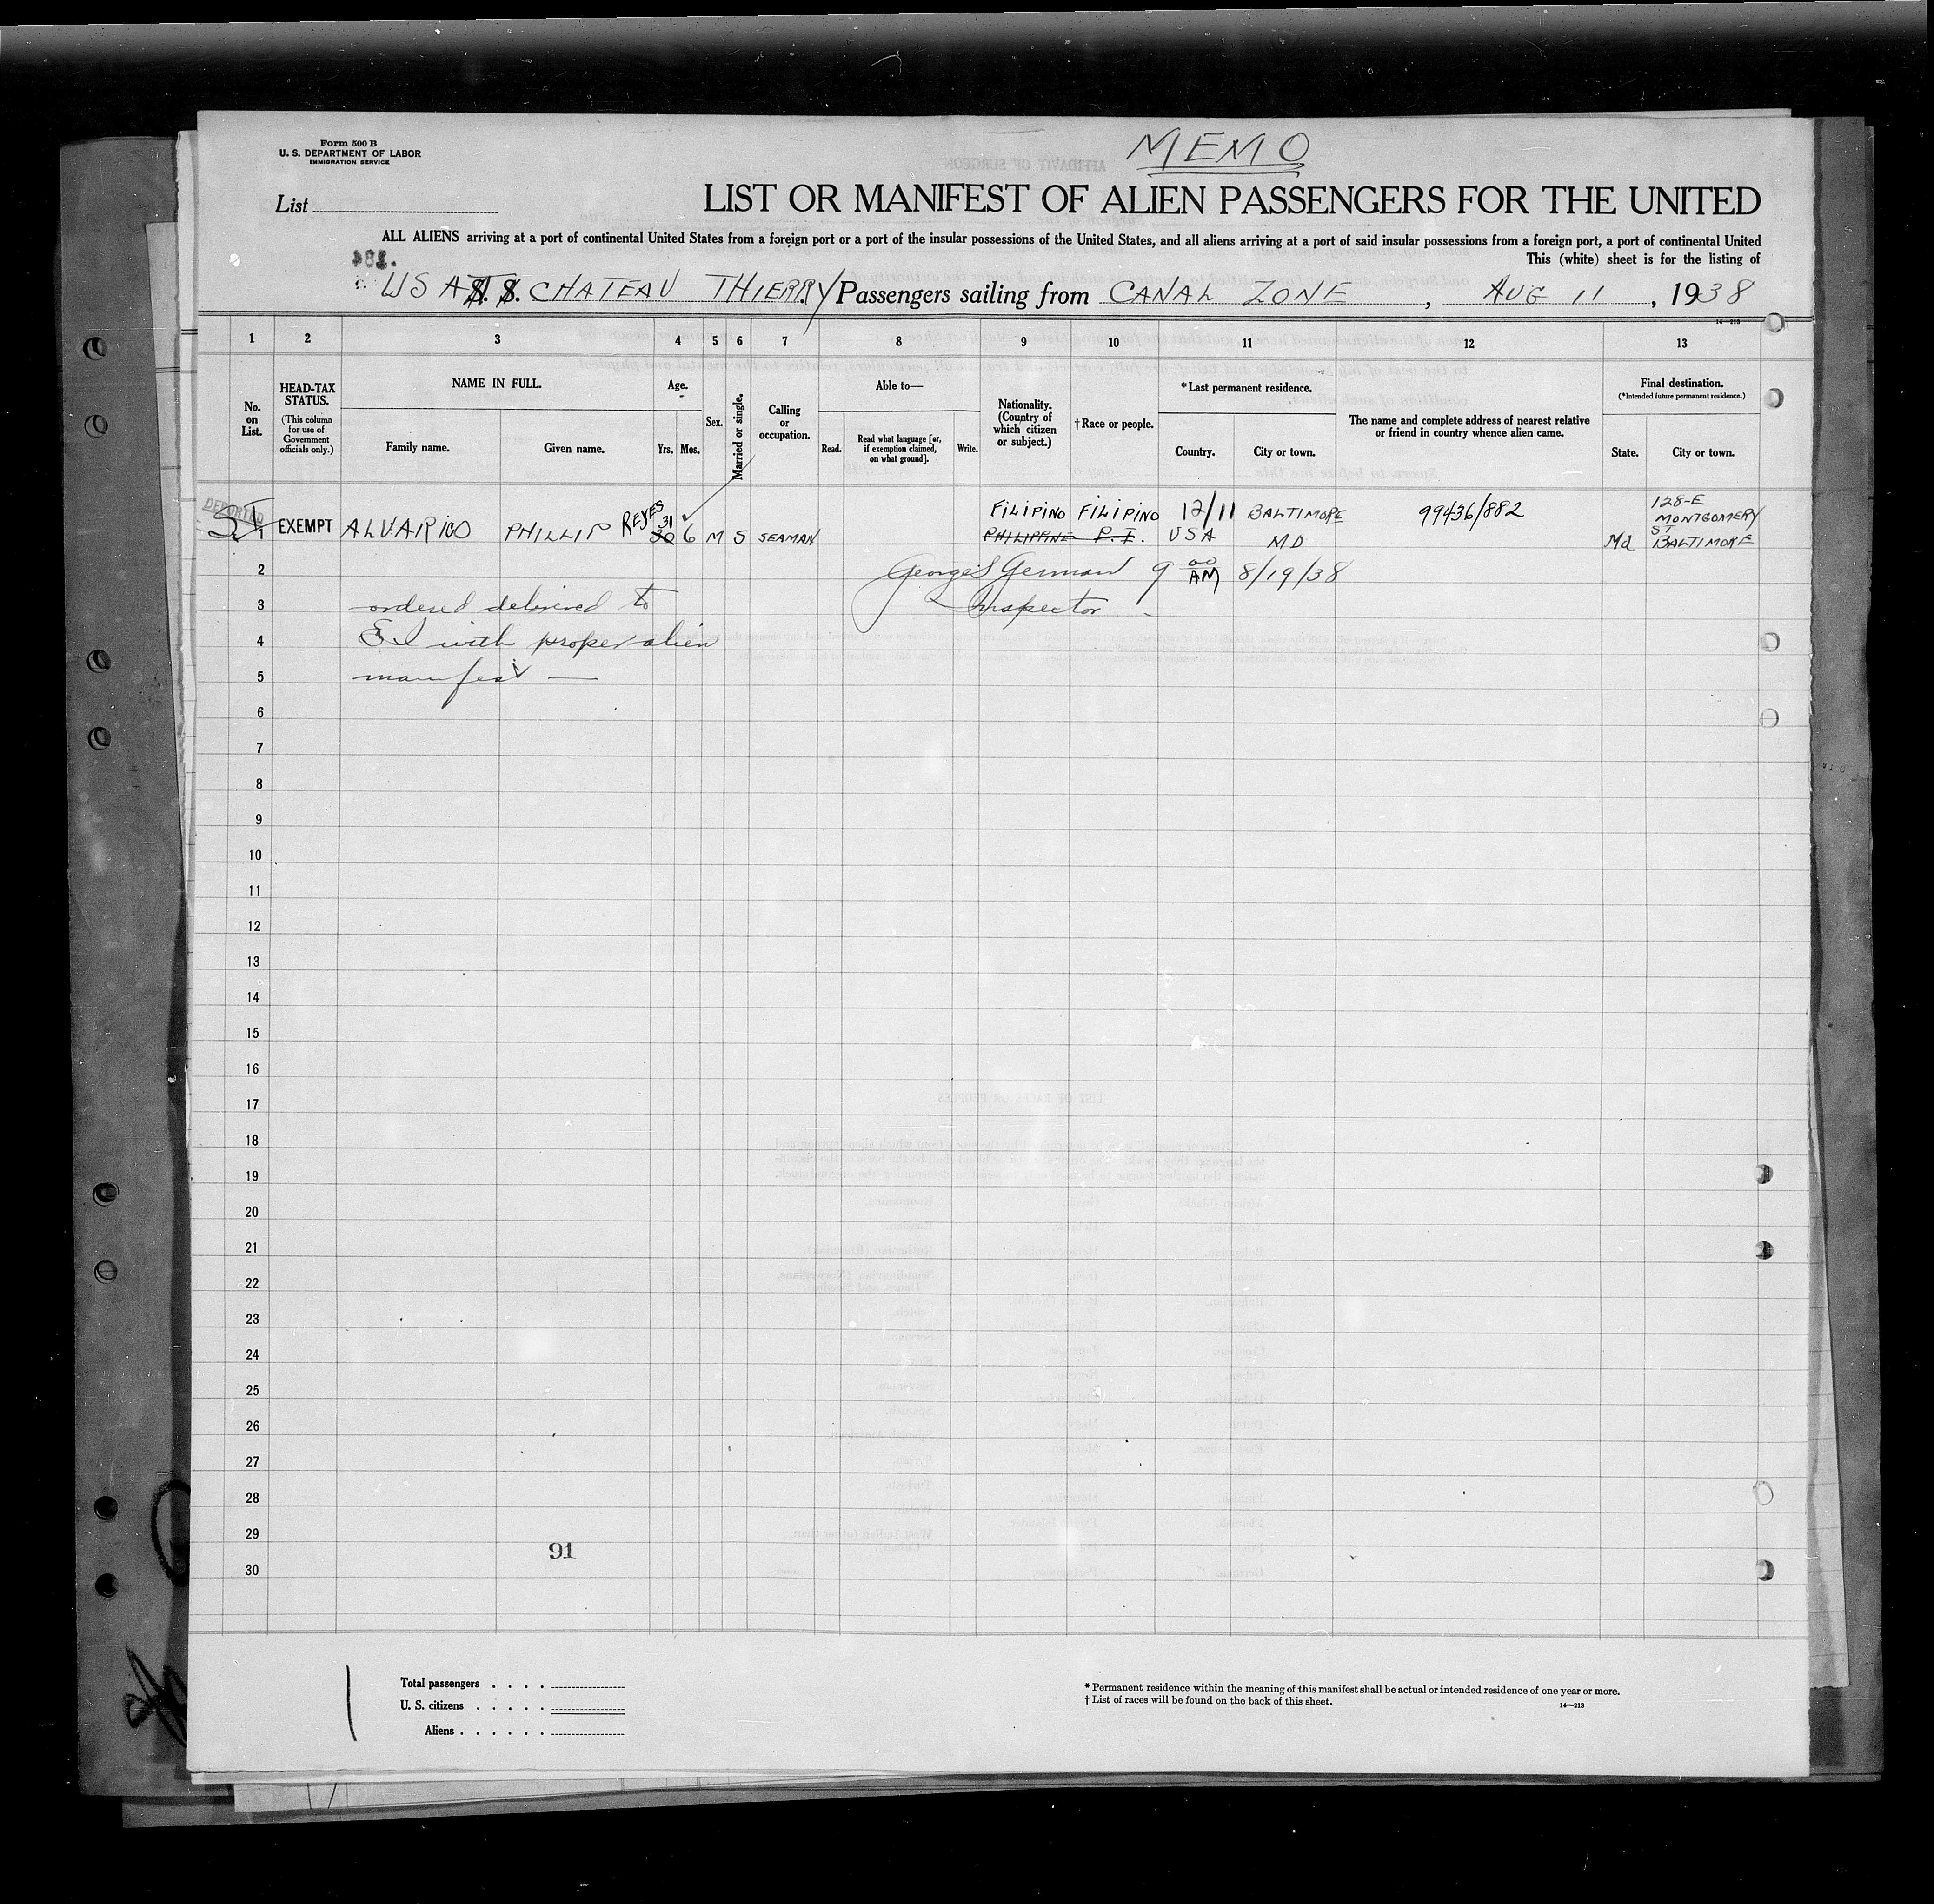 MEMO
Form 500 B
U. S. DEPARTMENT OF LABOR
IMMIGRATION SERVICE
List
LIST OR MANIFEST OF ALIEN PASSENGERS FOR THE UNITED
ALL ALIENS arriving at a port of continental United States from a foreign port or a port of the insular possessions of the United States, and all aliens arriving at a port of said insular possessions from a foreign port, a port of continental United
This (white) sheet is for the listing of
USAT S. S. CHATEAU THIERRY Passengers sailing from CANAL ZONE, AUG 11, 1938
14—213
1 2 3 4 5 6 7 8 9 10 11 12 13
No. on List.
HEAD-TAX STATUS.
(This column for use of Government officials only.)
NAME IN FULL.
Family name. Given name.
Age.
Yrs. Mos.
Sex.
Married or single.
Calling or occupation.
Able to—
Read. Read what language [or, if exemption claimed, on what ground]. Write.
Nationality. (Country of which citizen or subject.)
†Race or people.
*Last permanent residence.
Country. City or town.
The name and complete address of nearest relative or friend in country whence alien came.
Final destination.
(*Intended future permanent residence.)
State. City or town.
DEPORTED
1 EXEMPT ALVARICO PHILLIP REYES 31 30 6 M S SEAMAN FILIPINO FILIPINO 12/11 BALTIMORE 99436/882 128-E MONTGOMERY ST
PHILIPPINE P.I. USA MD Md BALTIMORE
2 George S German 9 00 AM 8/19/38
3 ordered delivered to Inspector
4 E I with proper alien
5 manifest —
6
7
8
9
10
11
12
13
14
15
16
17
18
19
20
21
22
23
24
25
26
27
28
29
91
30
Total passengers . . . .
U. S. citizens . . . . .
Aliens . . . . . .
* Permanent residence within the meaning of this manifest shall be actual or intended residence of one year or more.
† List of races will be found on the back of this sheet.
14—213